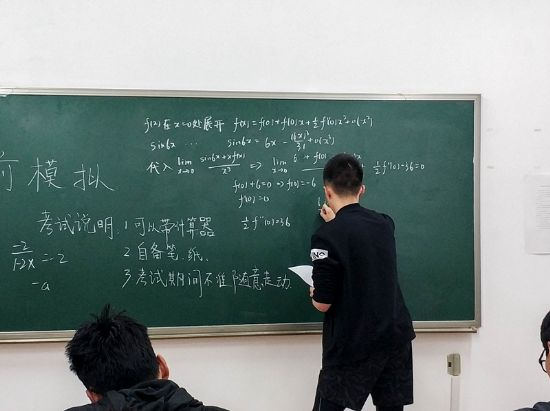 f(x) 在 x=0 处展开 f(x)=f(0)+f'(0)x+½f''(0)x²+o(x²)
sin6x ... sin6x = 6x - (6x)³/3! + o(x³)
代入 lim x→0 (sin6x+xf(x))/x³ ⇒ lim x→0 6+f(0) ½f''(0)-36=0
f(0)+6=0 ⇒ f(0)=-6
f'(0)=0
½f''(0)=36
前模拟
考试说明:1 可以带计算器
2 自备笔、纸、
3 考试期间不准随意走动.
-2/(1-2x) = -2
-a
NO